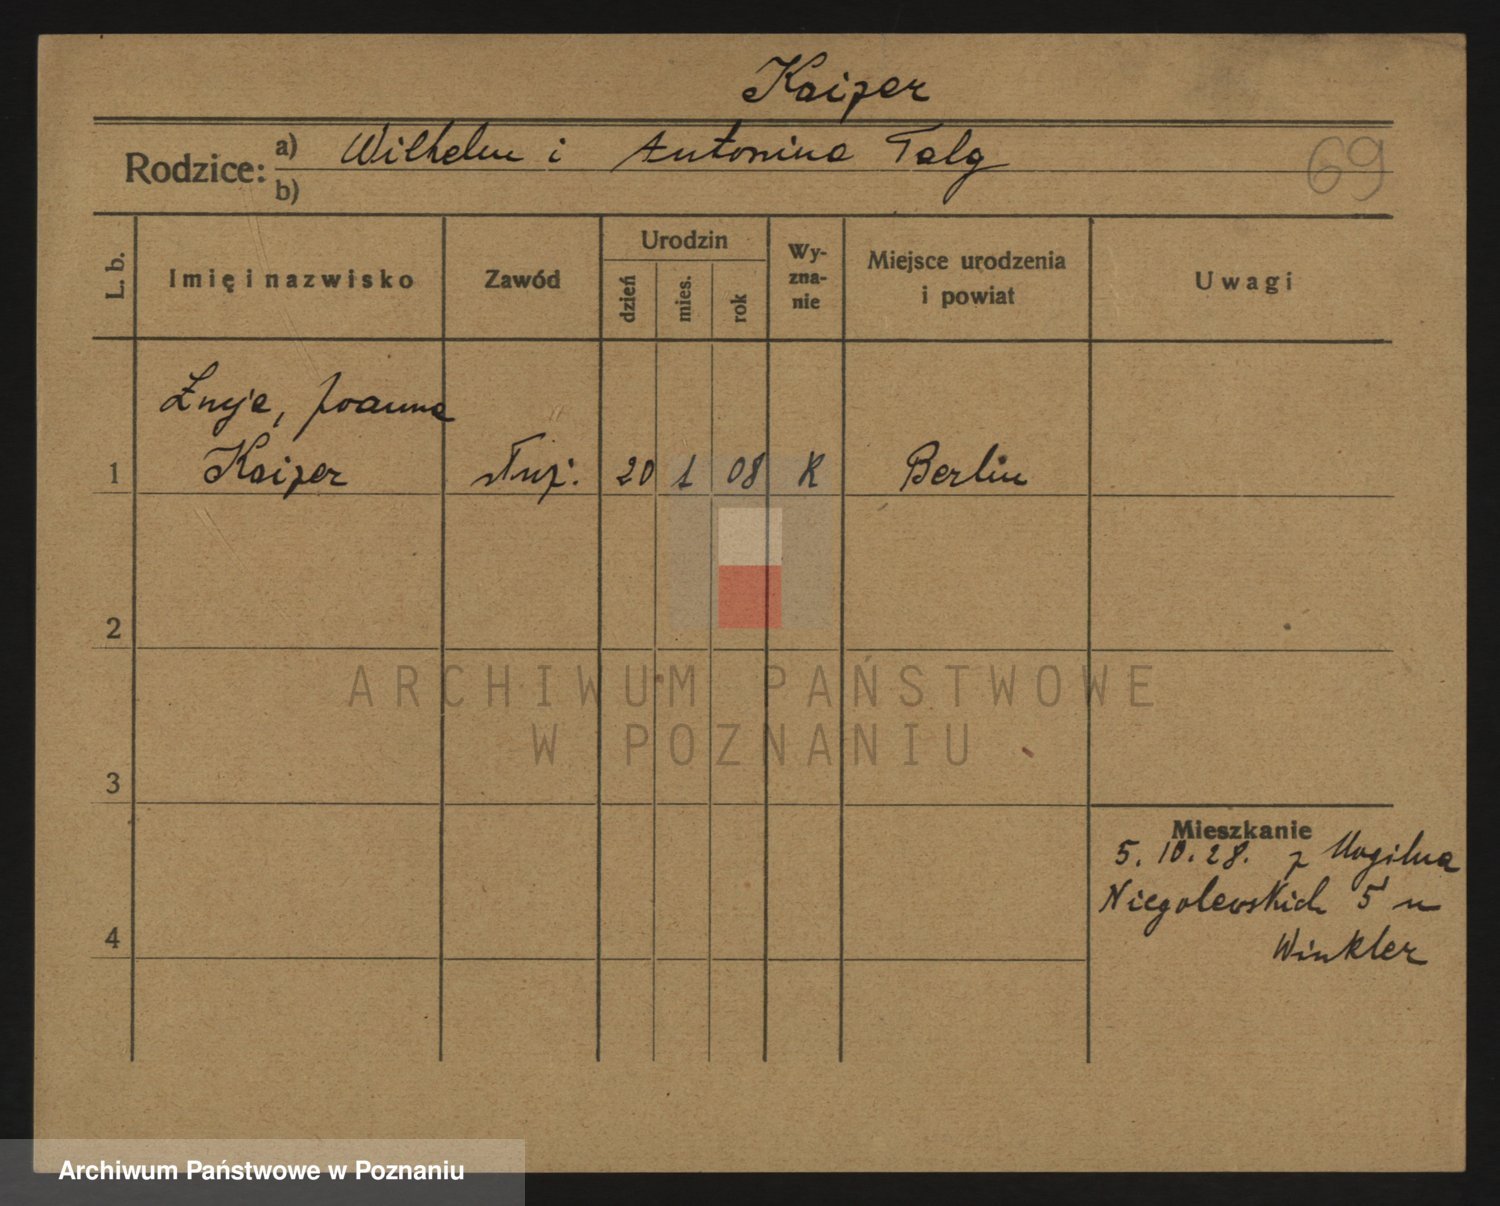 Kaizer
Rodzice: a) Wilhelm i Antonina Talg
b)
69
L. b.
Imię i nazwisko
Zawód
Urodzin
dzień
mies.
rok
Wy-
zna-
nie
Miejsce urodzenia
i powiat
Uwagi
Joanna
1 Kaizer służ. 20 1 08 K Berlin
2
3
4
ARCHIWUM PAŃSTWOWE
W POZNANIU
Mieszkanie
5.10.28. z Mogilna
Niegolewskich 5 u
Winkler
Archiwum Państwowe w Poznaniu